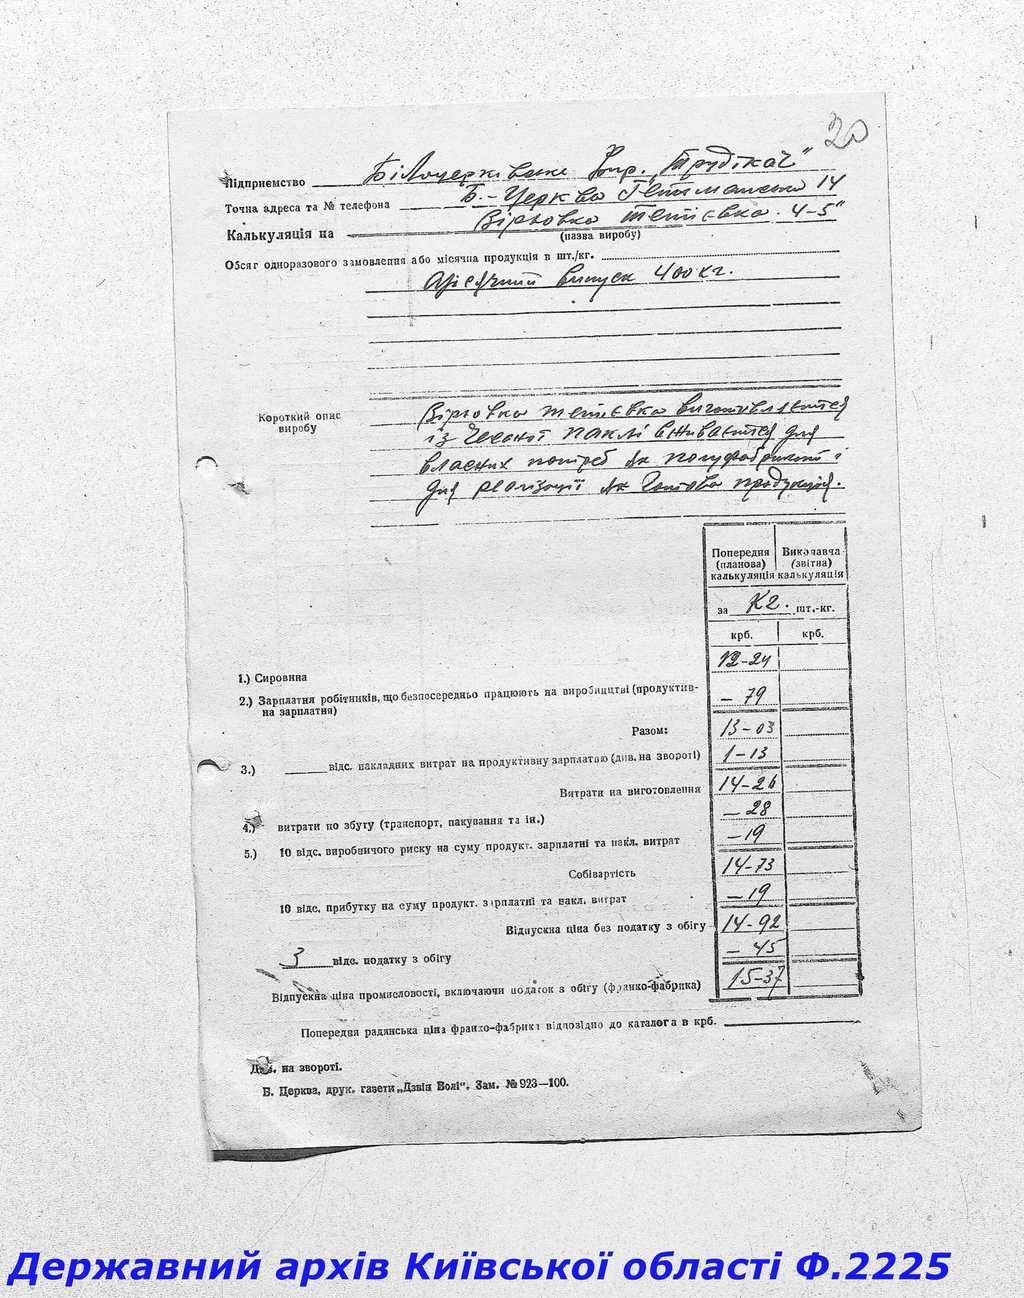 20
Підприємство Білоцерківське Упр. "Трудікач"
Точна адреса та № телефона Б.-Церква Гетьманська 14
Калькуляція на Вірьовка 4-5"
(назва виробу)
Обсяг одноразового замовлення або місячна продукція в шт./кг.
Місячний випуск 400 кг.
Короткий опис виробу
Вірьовка виготовляється
із чесаної паклі вживається для
власних потреб як полуфабрикат і
для реалізації як готова продукція.
Попередня (планова) калькуляція
Виконавча (звітна) калькуляція
за кг. шт.-кг.
крб. крб.
1.) Сировина 12-24
2.) Зарплатня робітників, що безпосередньо працюють на виробництві (продуктив-
на зарплатня) — 79
Разом: 13-03
3.) відс. накладних витрат на продуктивну зарплатню (див. на звороті) 1-13
Витрати на виготовлення 14-26
4.) витрати по збуту (транспорт, пакування та ін.) — 28
5.) 10 відс. виробничого риску на суму продукт. зарплатні та накл. витрат — 19
Собівартість 14-73
10 відс. прибутку на суму продукт. зарплатні та накл. витрат — 19
Відпускна ціна без податку з обігу 14-92
3 відс. податку з обігу — 45
Відпускна ціна промисловості, включаючи податок з обігу (франко-фабрика) 15-37
Попередня радянська ціна франко-фабрика відповідно до каталога в крб.
Див. на звороті.
Б. Церква, друк. газети „Дзвін Волі". Зам. № 923—100.
Державний архів Київської області Ф.2225